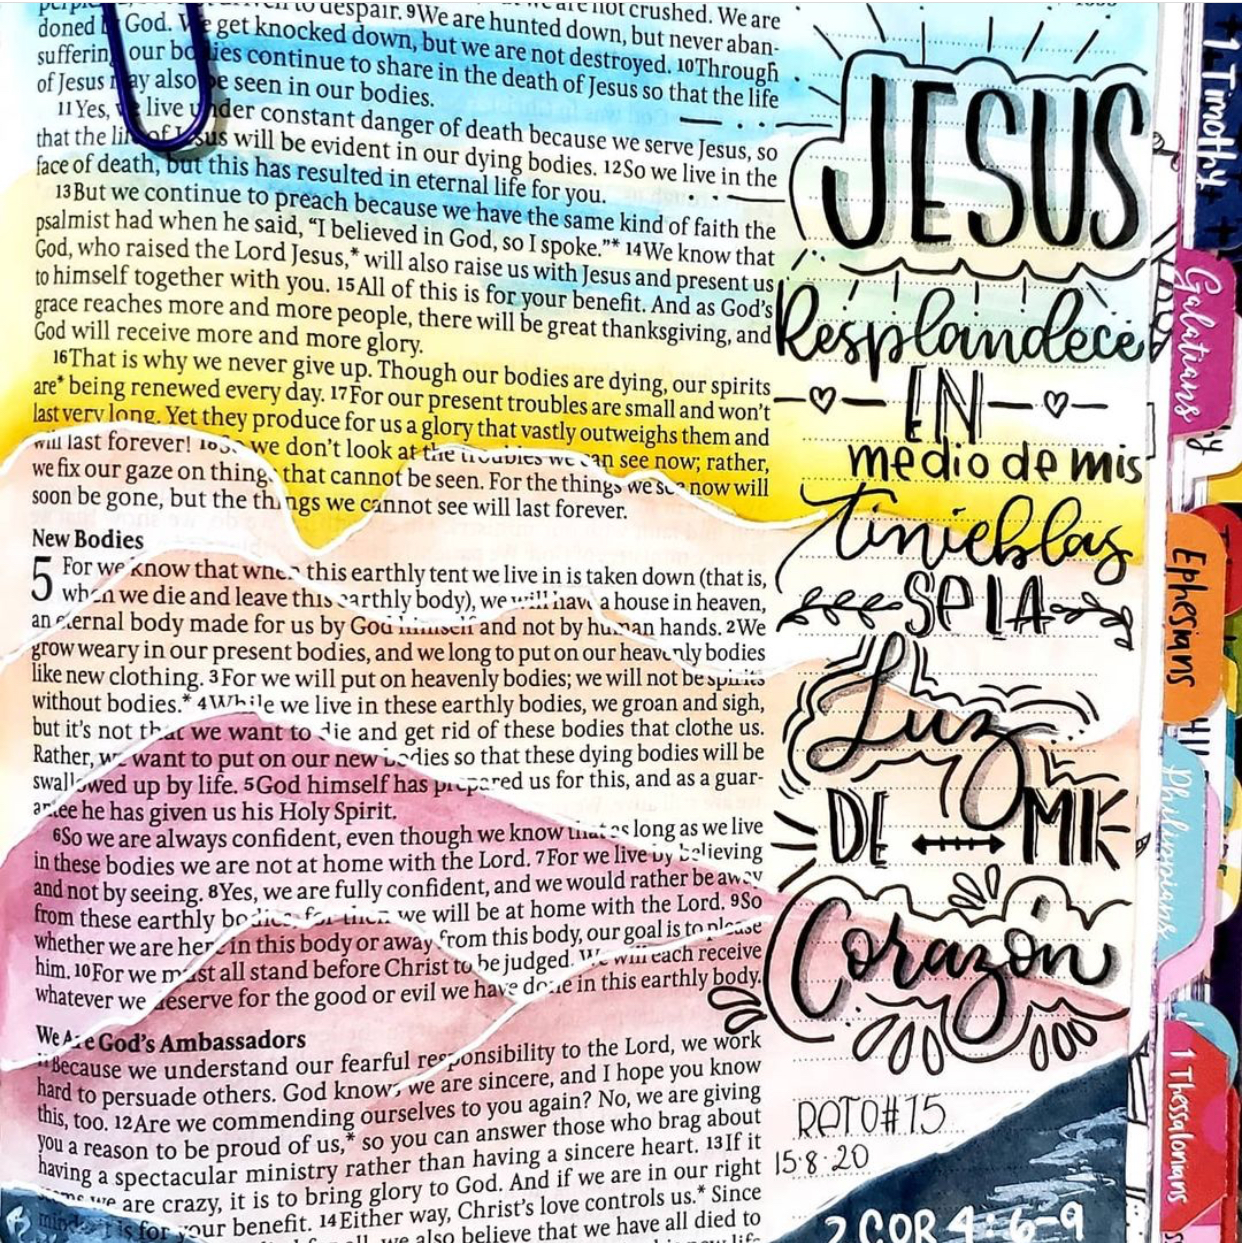 to despair. 9We are hunted down, but never aban-
doned God. We get knocked down, but we are not destroyed. 10Through
suffering our bodies continue to share in the death of Jesus so that the life
of Jesus may also be seen in our bodies.
11Yes, we live under constant danger of death because we serve Jesus, so
that the life of Jesus will be evident in our dying bodies. 12So we live in the
face of death, but this has resulted in eternal life for you.
13But we continue to preach because we have the same kind of faith the
psalmist had when he said, “I believed in God, so I spoke.”* 14We know that
God, who raised the Lord Jesus,* will also raise us with Jesus and present us
to himself together with you. 15All of this is for your benefit. And as God’s
grace reaches more and more people, there will be great thanksgiving, and
God will receive more and more glory.
16That is why we never give up. Though our bodies are dying, our spirits
are* being renewed every day. 17For our present troubles are small and won’t
last very long. Yet they produce for us a glory that vastly outweighs them and
will last forever! 18So we don’t look at the troubles we can see now; rather,
we fix our gaze on things that cannot be seen. For the things we see now will
soon be gone, but the things we cannot see will last forever.
New Bodies
5 For we know that when this earthly tent we live in is taken down (that is,
when we die and leave this earthly body), we will have a house in heaven,
an eternal body made for us by God himself and not by human hands. 2We
grow weary in our present bodies, and we long to put on our heavenly bodies
like new clothing. 3For we will put on heavenly bodies; we will not be spirits
without bodies.* 4While we live in these earthly bodies, we groan and sigh,
but it’s not that we want to die and get rid of these bodies that clothe us.
Rather, we want to put on our new bodies so that these dying bodies will be
swallowed up by life. 5God himself has prepared us for this, and as a guar-
antee he has given us his Holy Spirit.
6So we are always confident, even though we know that as long as we live
in these bodies we are not at home with the Lord. 7For we live by believing
and not by seeing. 8Yes, we are fully confident, and we would rather be away
from these earthly bodies, for then we will be at home with the Lord. 9So
whether we are here in this body or away from this body, our goal is to please
him. 10For we must all stand before Christ to be judged. We will each receive
whatever we deserve for the good or evil we have done in this earthly body.
We Are God’s Ambassadors
11Because we understand our fearful responsibility to the Lord, we work
hard to persuade others. God knows we are sincere, and I hope you know
this, too. 12Are we commending ourselves to you again? No, we are giving
you a reason to be proud of us,* so you can answer those who brag about
having a spectacular ministry rather than having a sincere heart. 13If it
seems we are crazy, it is to bring glory to God. And if we are in our right
minds, it is for your benefit. 14Either way, Christ’s love controls us.* Since
we also believe that we have all died to
JESUS
Resplandece
EN
medio de mis
tinieblas
SE LA
Luz
DE MI
Corazón
RETO#15
15·8·20
2 COR 4:6-9
1 Timothy
Galatians
Ephesians
Philippians
1 Thessalonians